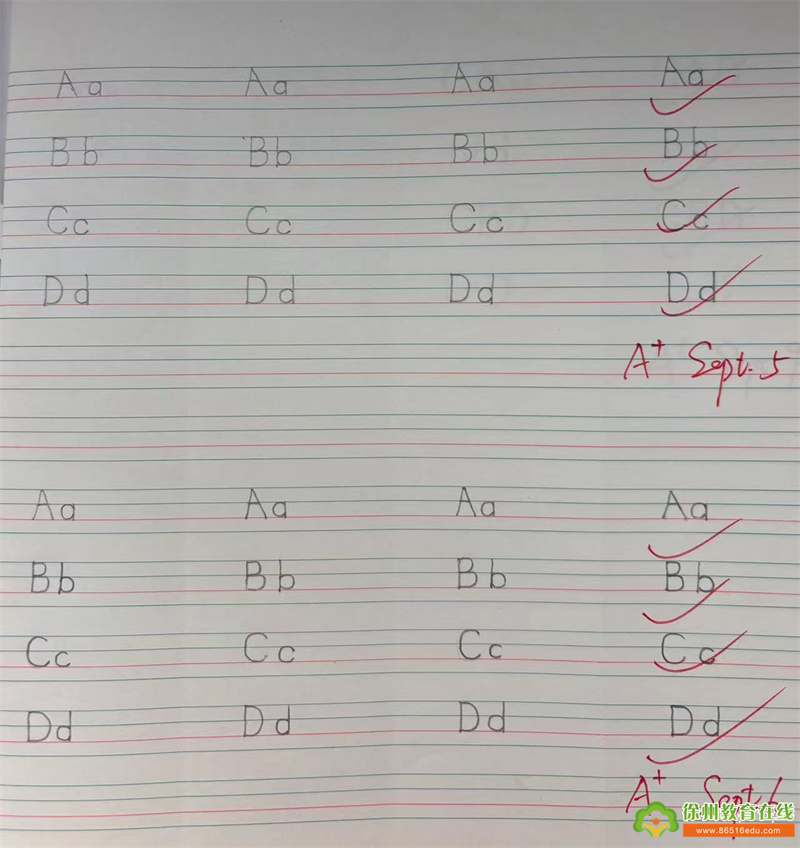 Aa Aa Aa Aa
Bb Bb Bb Bb
Cc Cc Cc Cc
Dd Dd Dd Dd
A+ Sept. 5
Aa Aa Aa Aa
Bb Bb Bb Bb
Cc Cc Cc Cc
Dd Dd Dd Dd
A+ Sept. 6
徐州教育在线
www.86516edu.com